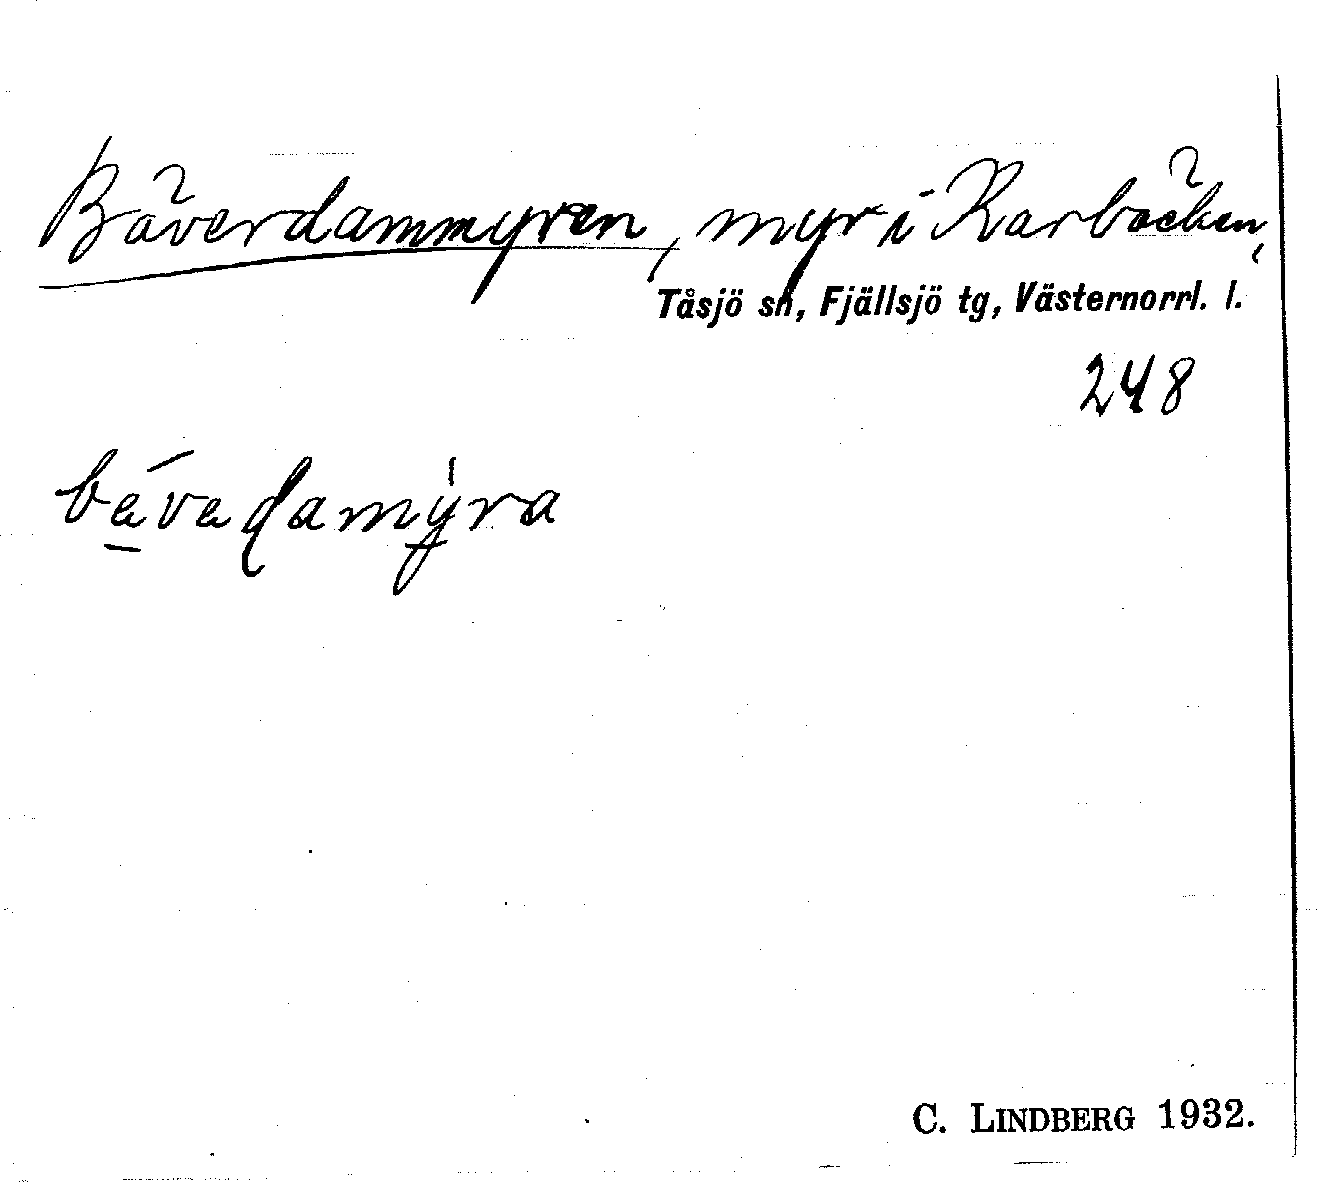 Bäverdammyren, myr i Karbäcken,
Tåsjö sn, Fjällsjö tg, Västernorrl. l.
248
bävadamyra
C. LINDBERG 1932.